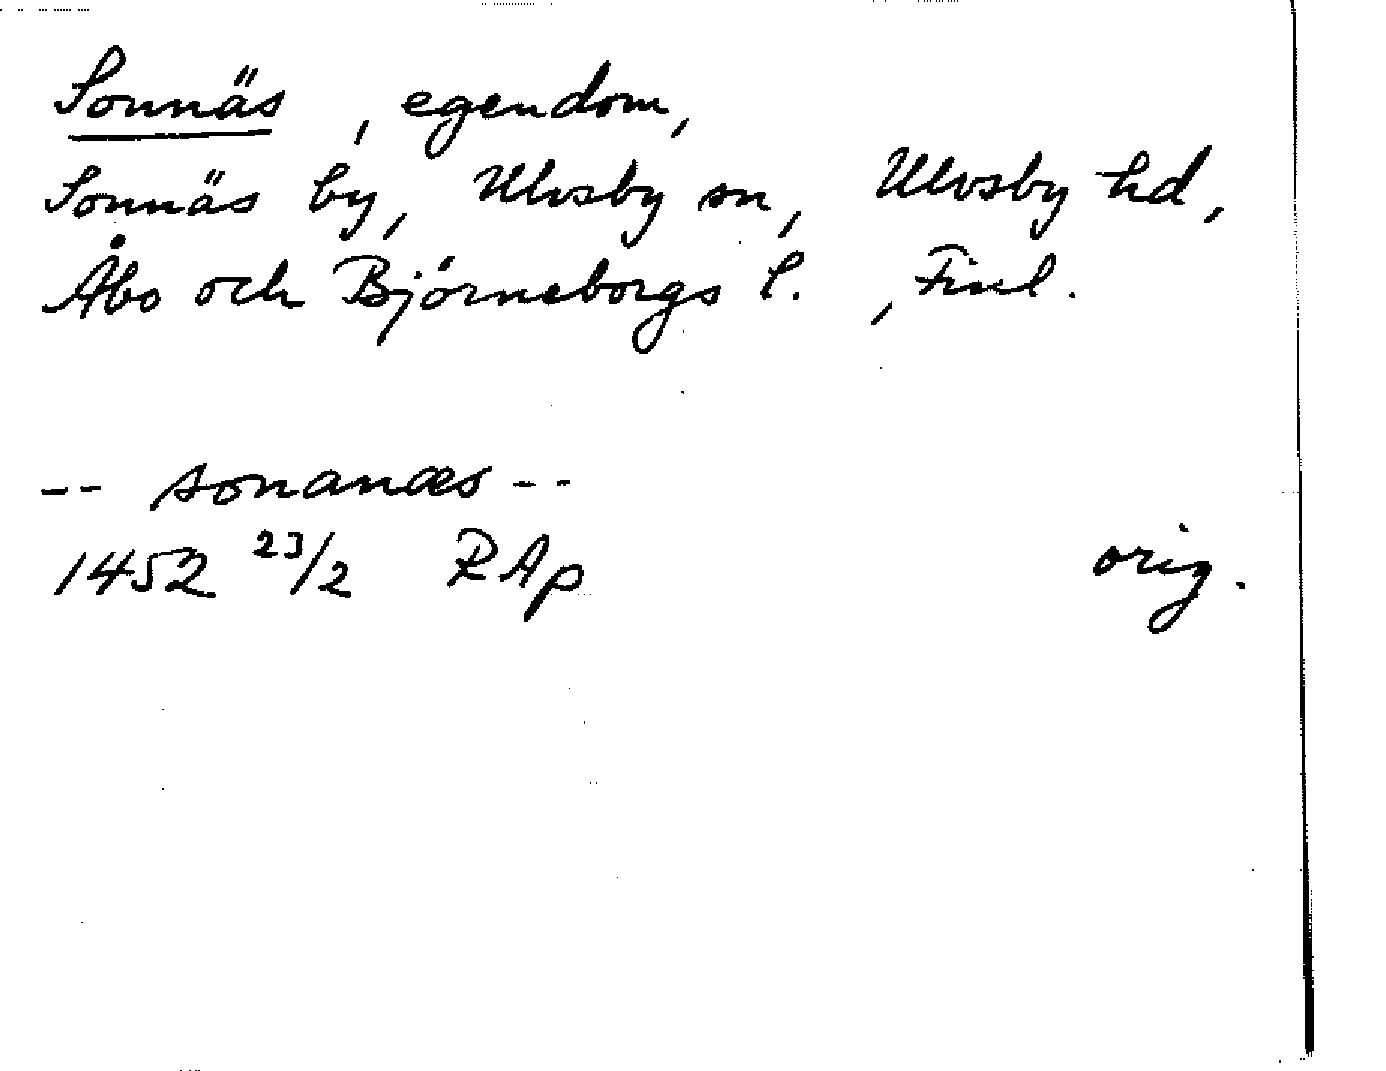 Sonnäs, egendom,
Sonnäs by, Ulvsby sn, Ulvsby hd,
Åbo och Björneborgs l., Finl.
-- sonanæs --
1452 23/2 RAp orig.